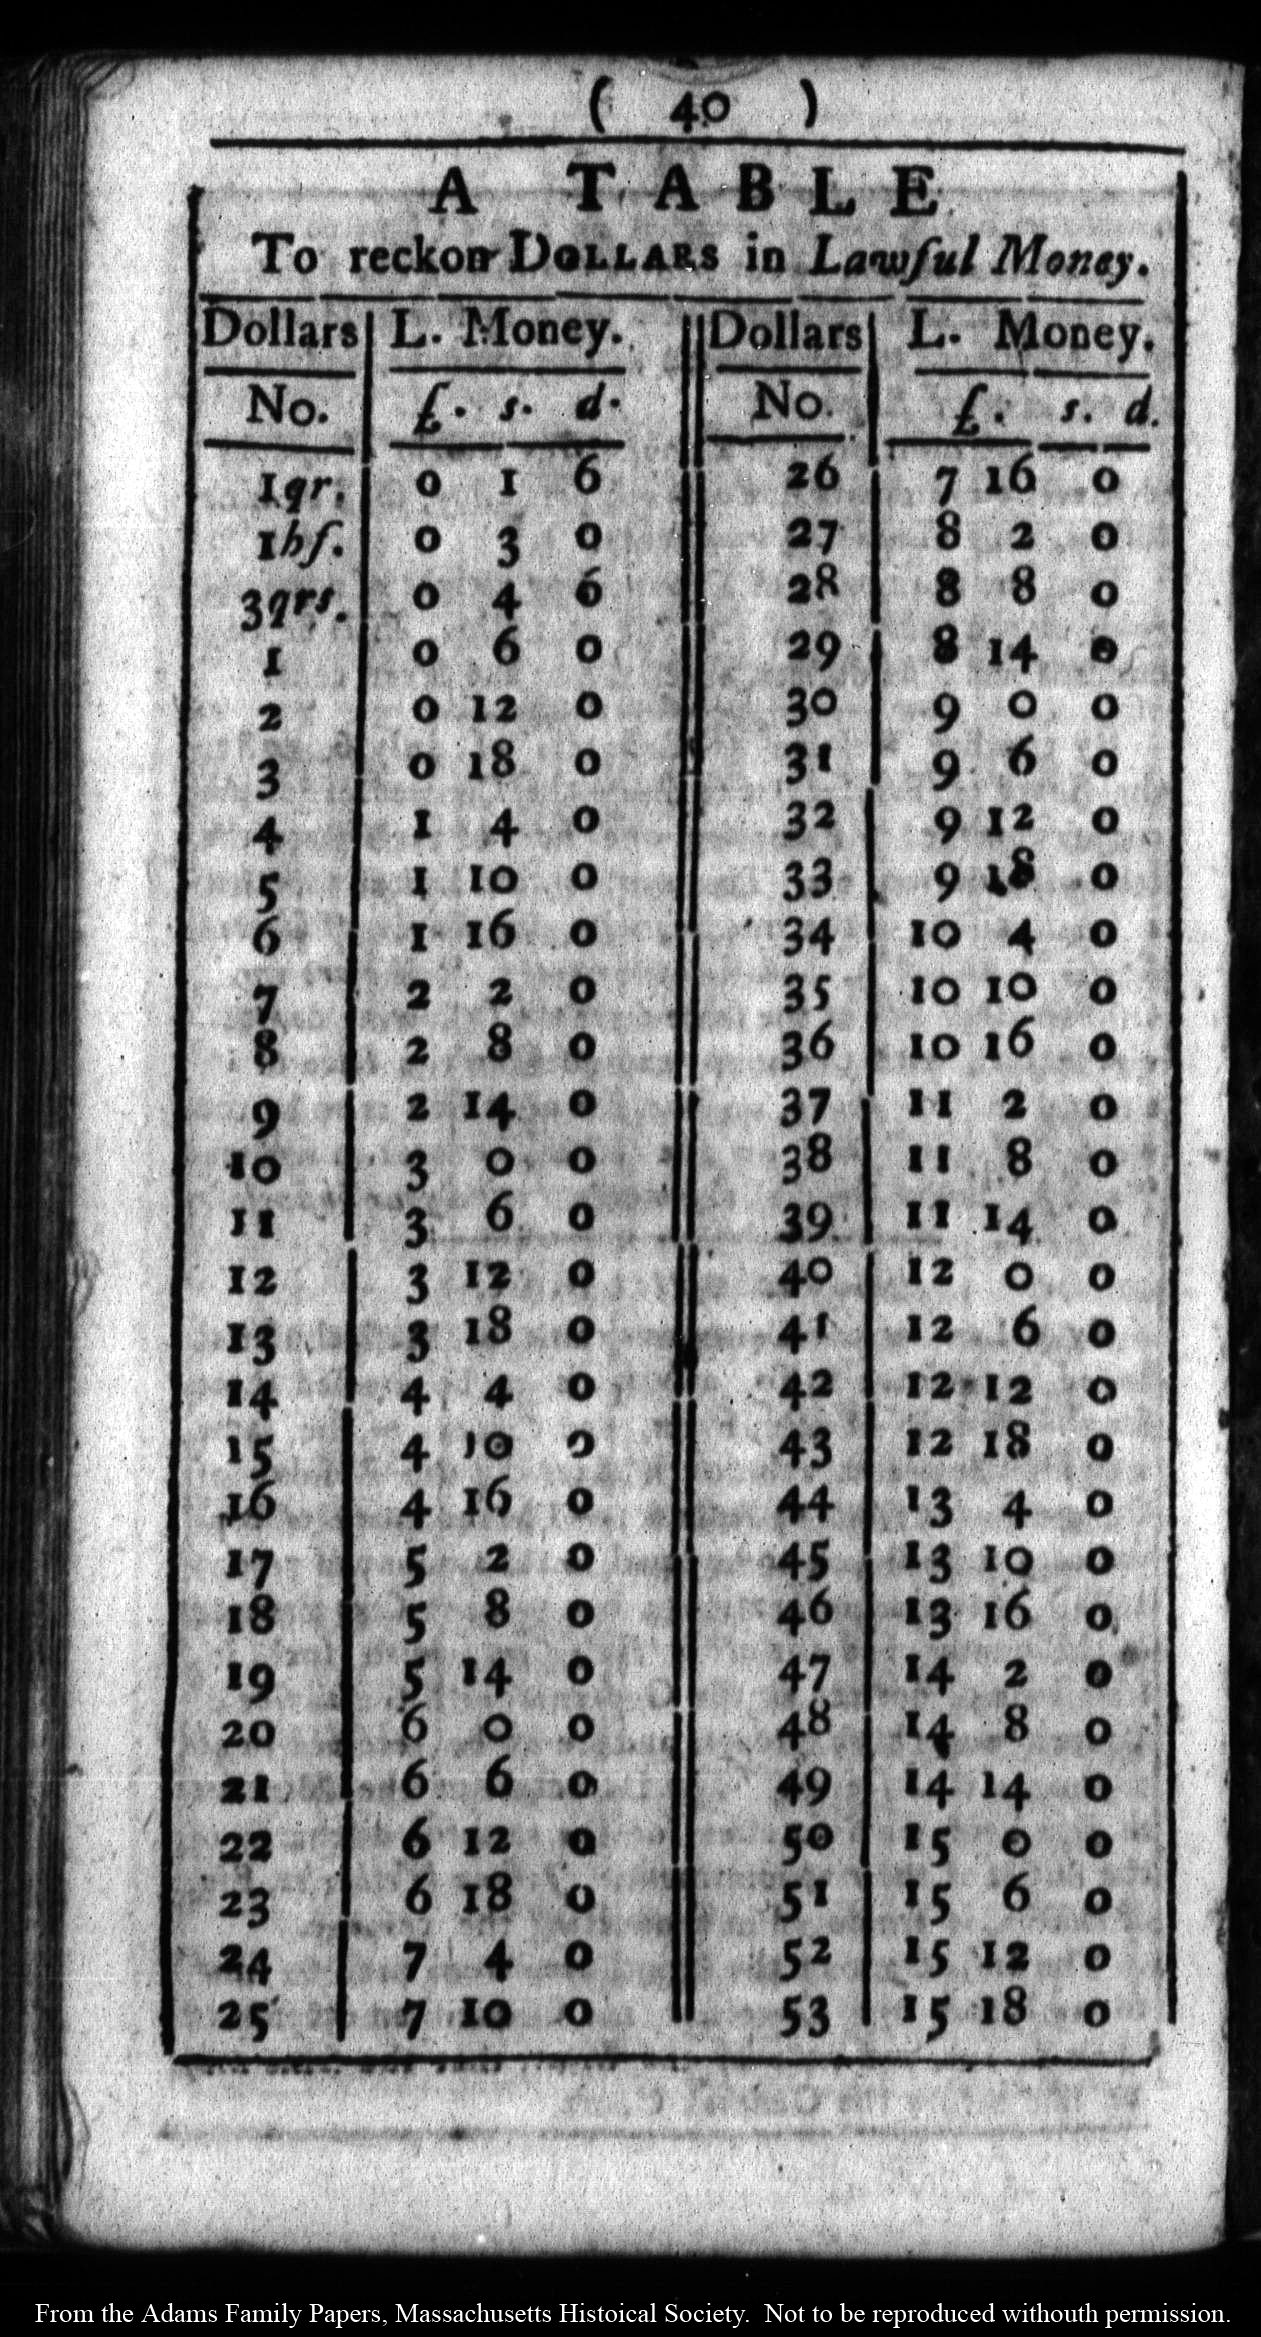 ( 40 )
A TABLE
To reckon DOLLARS in Lawful Money.
Dollars L. Money. Dollars L. Money.
No. £. s. d. No. £. s. d.
1qr. 0 1 6 26 7 16 0
1hf. 0 3 0 27 8 2 0
3qrs. 0 4 6 28 8 8 0
1 0 6 0 29 8 14 0
2 0 12 0 30 9 0 0
3 0 18 0 31 9 6 0
4 1 4 0 32 9 12 0
5 1 10 0 33 9 18 0
6 1 16 0 34 10 4 0
7 2 2 0 35 10 10 0
8 2 8 0 36 10 16 0
9 2 14 0 37 11 2 0
10 3 0 0 38 11 8 0
11 3 6 0 39 11 14 0
12 3 12 0 40 12 0 0
13 3 18 0 41 12 6 0
14 4 4 0 42 12 12 0
15 4 10 0 43 12 18 0
16 4 16 0 44 13 4 0
17 5 2 0 45 13 10 0
18 5 8 0 46 13 16 0
19 5 14 0 47 14 2 0
20 6 0 0 48 14 8 0
21 6 6 0 49 14 14 0
22 6 12 0 50 15 0 0
23 6 18 0 51 15 6 0
24 7 4 0 52 15 12 0
25 7 10 0 53 15 18 0
From the Adams Family Papers, Massachusetts Histoical Society. Not to be reproduced withouth permission.